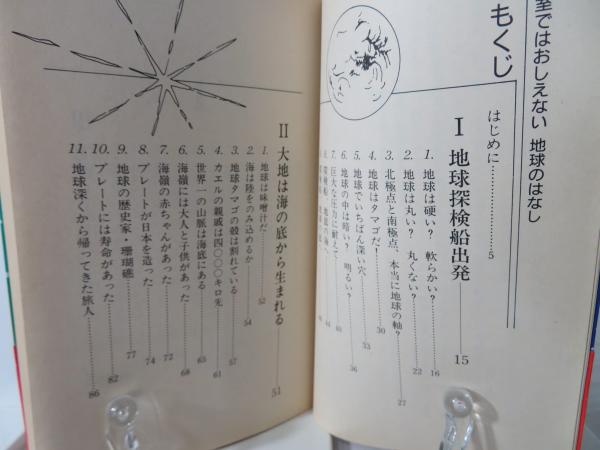 室ではおしえない 地球のはなし
もくじ
はじめに…………5
I 地球探検船出発 15
1. 地球は硬い? 軟らかい? 16
2. 地球は丸い? 丸くない? 22
3. 北極点と南極点、本当に地球の軸? 27
4. 地球はタマゴだ! 30
5. 地球でいちばん深い穴 33
6. 地球の中は暗い? 明るい? 36
7. 巨大な圧力に耐えて 40
II 大地は海の底から生まれる 51
1. 地球は味噌汁だ 52
2. 海は陸をのみ込めるか 54
3. 地球タマゴの殻は割れている 57
4. カエルの親戚は四〇〇〇キロ先 61
5. 世界一の山脈は海底にある 65
6. 海嶺には大人と子供があった 68
7. 海嶺の赤ちゃんがあった 72
8. プレートが日本を造った 74
9. 地球の歴史家・珊瑚礁 77
10. プレートには寿命があった 82
11. 地球深くから帰ってきた旅人 86